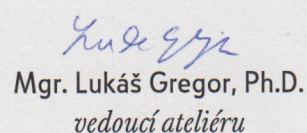 Mgr. Lukáš Gregor, Ph.D.
vedoucí ateliéru